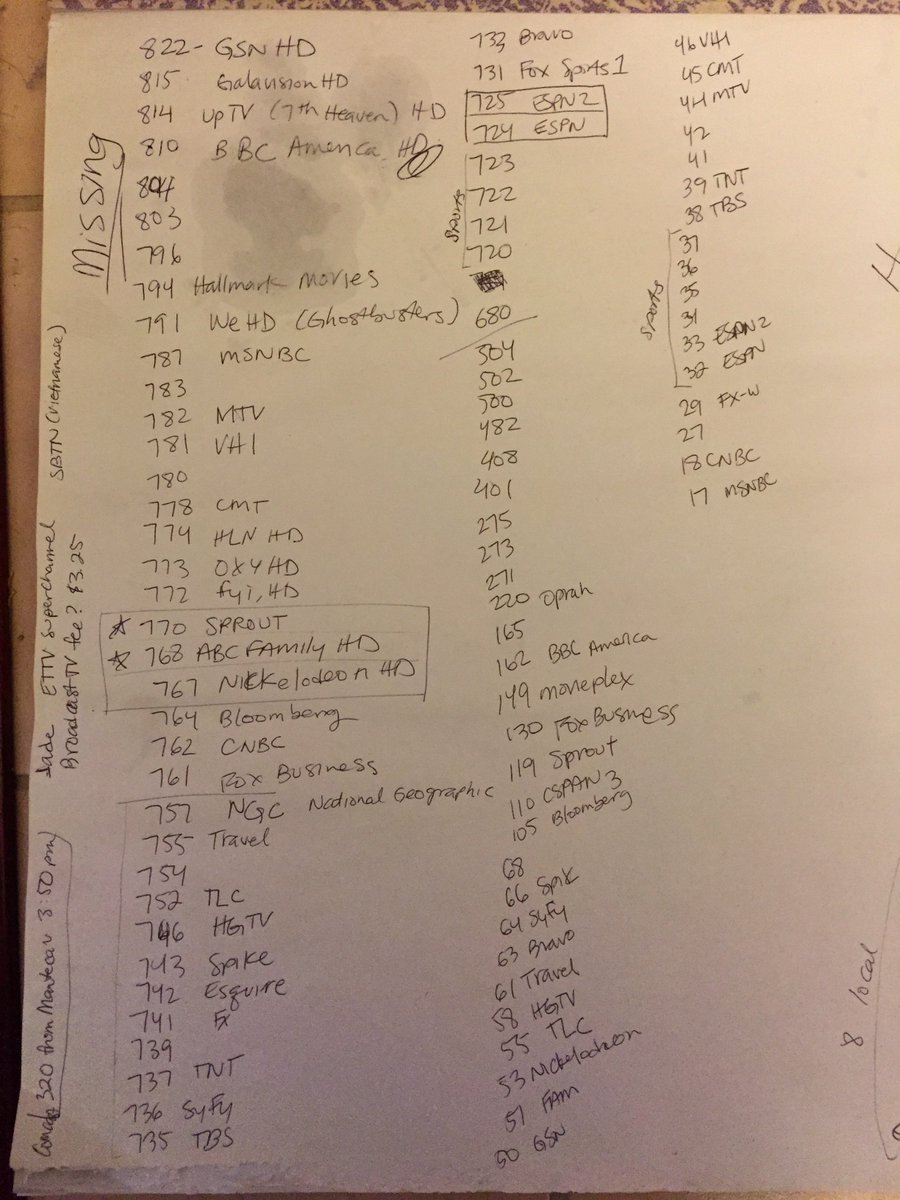 MISSING
822- GSN HD
815 Galavision HD
814 UpTV (7th Heaven) HD
810 BBC America HD
804
803
796
794 Hallmark Movies
791 We HD (Ghostbusters)
787 MSNBC
783
782 MTV
781 VH1
780
778 CMT
774 HLN HD
773 OXY HD
772 fyi, HD
☆ 770 SPROUT
☆ 768 ABC FAMily HD
767 Nickelodeon HD
764 Bloomberg
762 CNBC
761 Fox Business
757 NGC National Geographic
755 Travel
754
752 TLC
746 HGTV
743 Spike
742 Esquire
741 Fx
739
737 TNT
736 SyFy
735 TBS
733 Bravo
731 Fox Sports 1
725 ESPN2
724 ESPN
Sports
723
722
721
720
680
504
502
500
482
408
401
275
273
271
220 Oprah
165
162 BBC America
149 movieplex
130 Fox Business
119 Sprout
110 CSPAN 3
105 Bloomberg
68
66 Spik
64 SyFy
63 Bravo
61 Travel
58 HGTV
55 TLC
53 Nickelodeon
51 FAM
50 GSN
46 VH1
45 CMT
44 MTV
42
41
39 TNT
38 TBS
Sports
37
36
35
34
33 ESPN2
32 ESPN
29 FX-W
27
18 CNBC
17 MSNBC
Jade ETTV Superchannel SBTN (Vietnamese)
Broadcast TV fee? $3.25
320 from Mantecar 3:50 pm
8 local
H